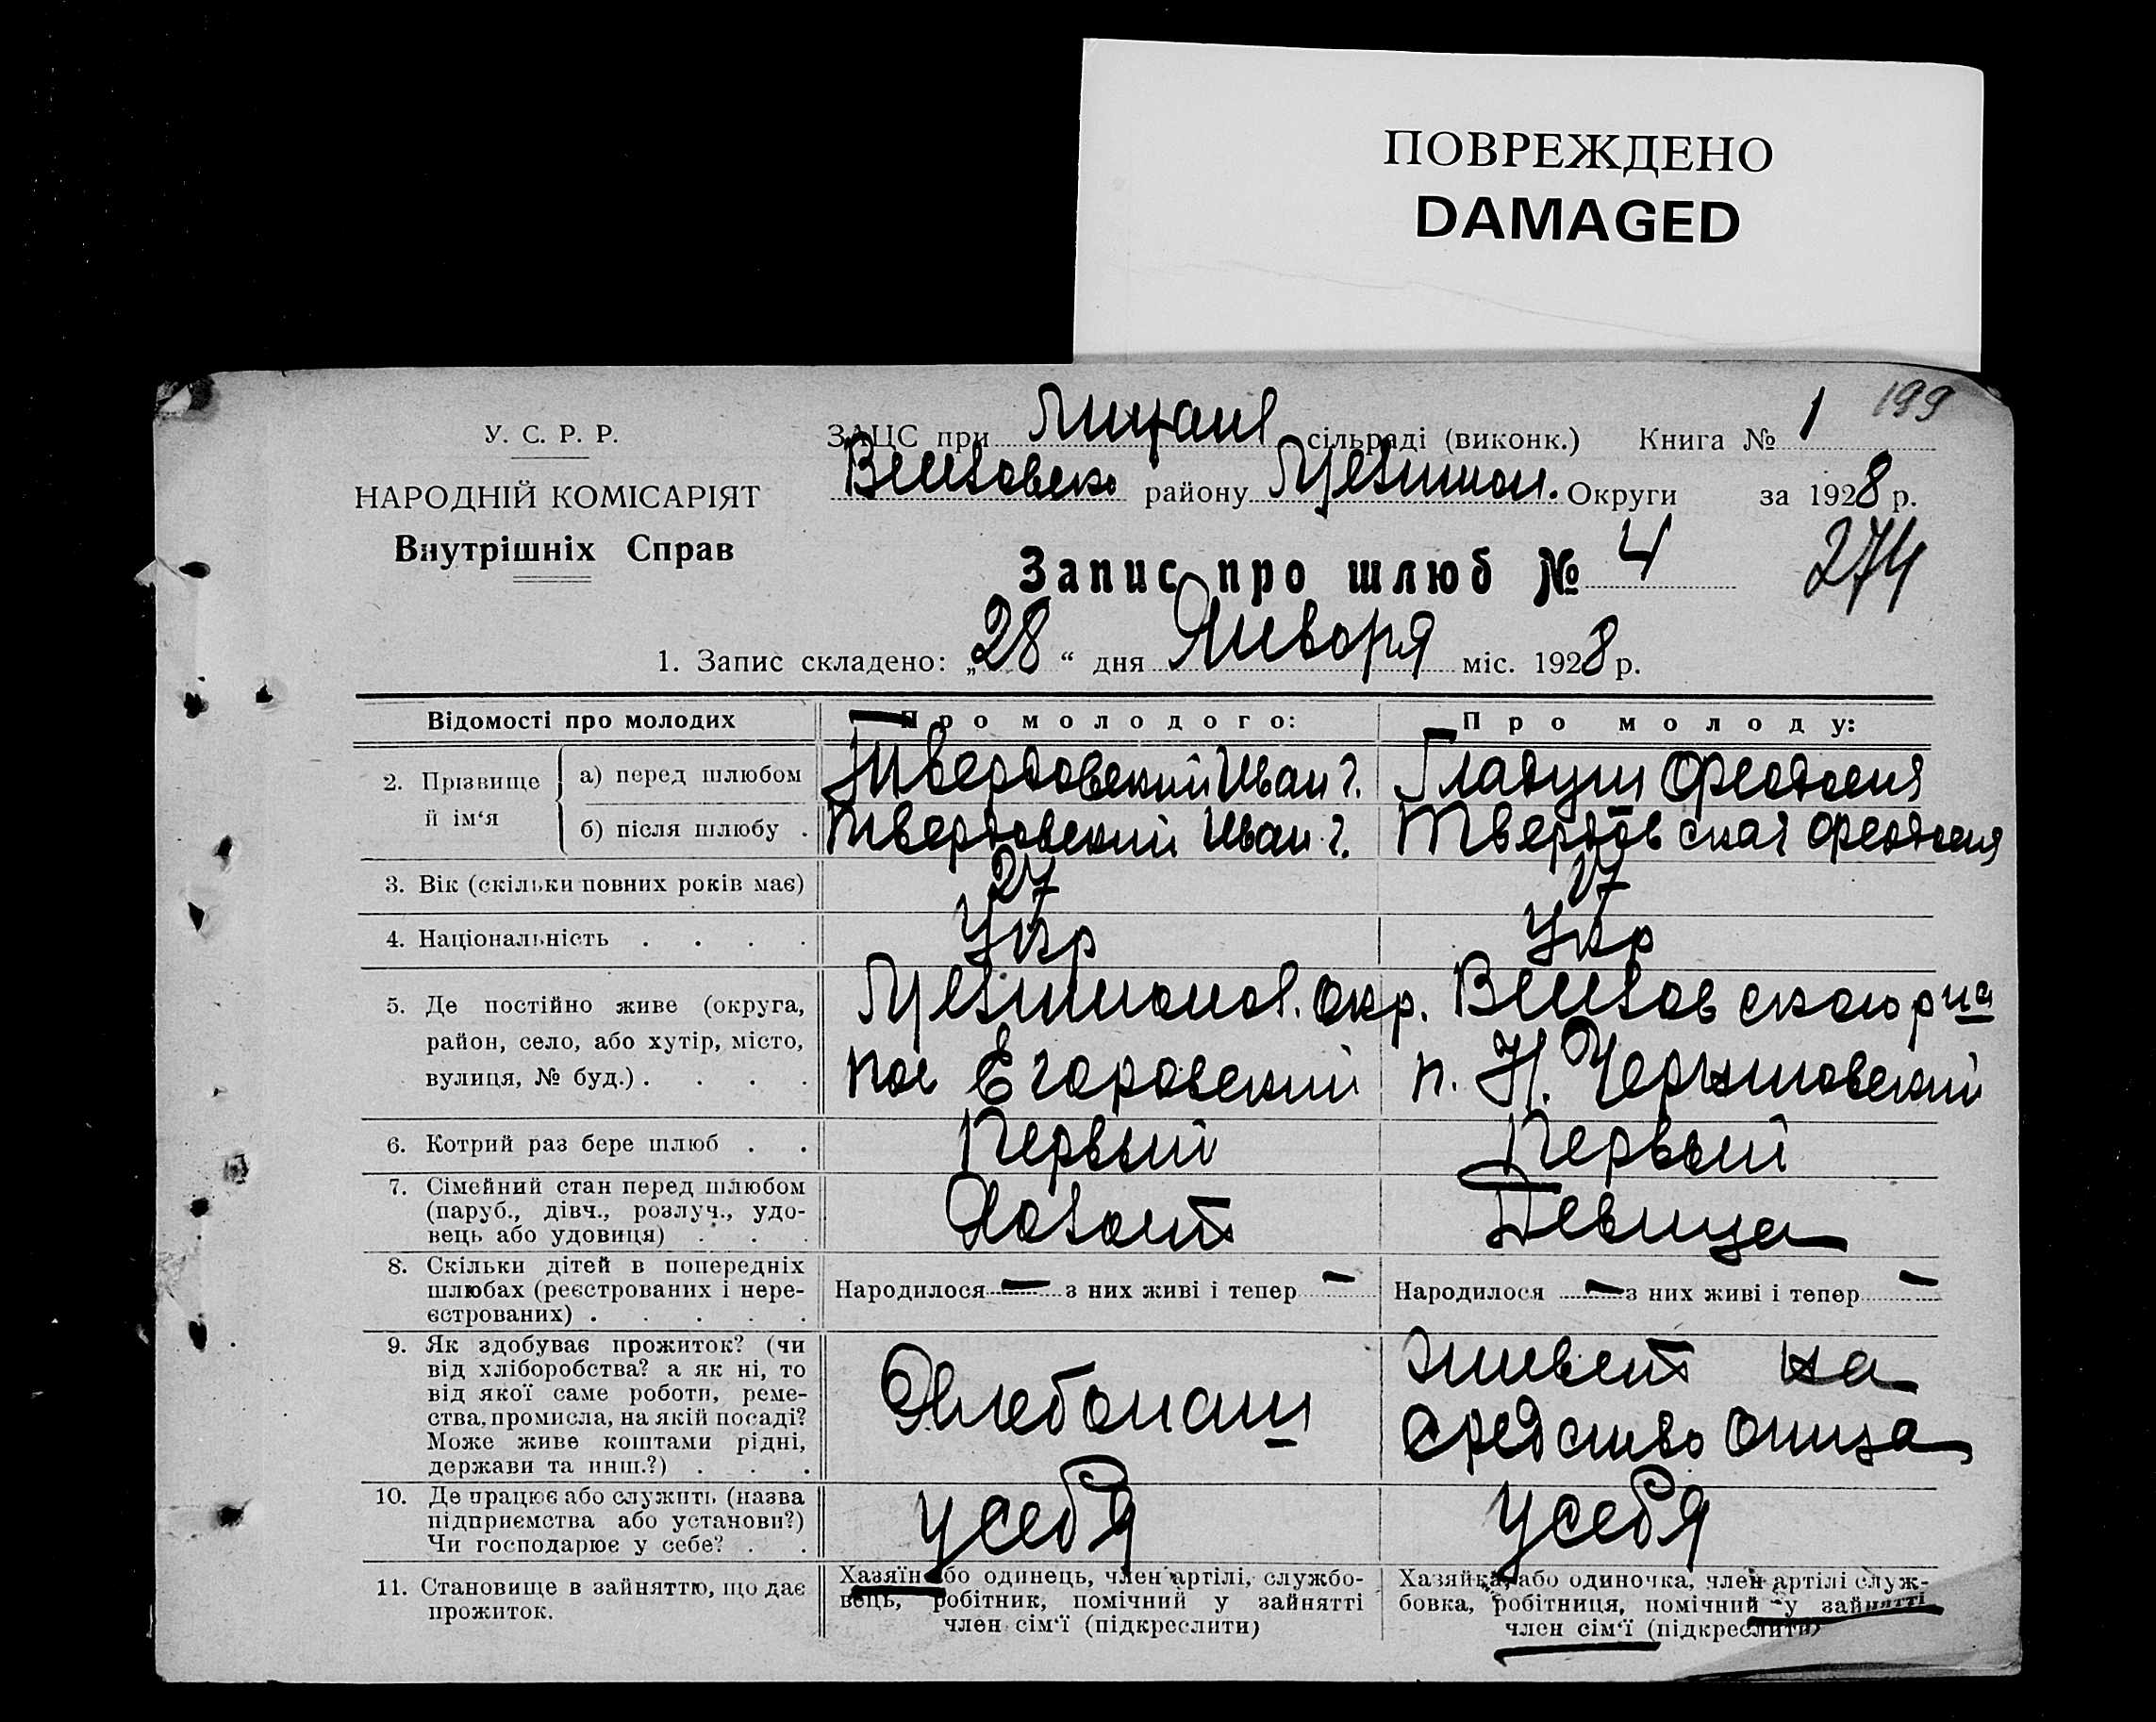 ПОВРЕЖДЕНО
DAMAGED
199
У. С. Р. Р.
ЗАЦС при сільраді (виконк.) Книга № 1
НАРОДНІЙ КОМІСАРІЯТ
району Округи за 1928 р.
Внутрішніх Справ
Запис про шлюб № 4
274
1. Запис складено: „28“ дня Января міс. 1928 р.
Відомості про молодих Про молодого: Про молоду:
2. Прізвище й ім‘я
а) перед шлюбом Твердовский Иван Г. Гладуш
б) після шлюбу . Твердовский Иван Г. Твердовская
3. Вік (скільки повних років має) 27 17
4. Національність . . . . Укр Укр
5. Де постійно живе (округа, окр.
район, село, або хутір, місто, пос Егоровский п. Н.
вулиця, № буд.) . . . .
6. Котрий раз бере шлюб . . Первый Первый
7. Сімейний стан перед шлюбом
(паруб., дівч., розлуч., удо- Холост Девица
вець або удовиця) . . .
8. Скільки дітей в попередніх
шлюбах (реєстрованих і нере- Народилося — з них живі і тепер — Народилося — з них живі і тепер —
єстрованих) . . . . .
9. Як здобуває прожиток? (чи
від хліборобства? а як ні, то живет на
від якої саме роботи, реме- Хлебопаш
ства, промисла, на якій посаді? средство отца
Може живе коштами рідні,
держави та инш.?) . . .
10. Де працює або служить (назва
підприємства або установи?) у себя у себя
Чи господарює у себе? . .
11. Становище в зайняттю, що дає
прожиток.
Хазяїн або одинець, член артілі, службо-
вець, робітник, помічний у зайнятті
член сім‘ї (підкреслити)
Хазяйка, або одиночка, член артілі служ-
бовка, робітниця, помічний у зайнятті
член сім‘ї (підкреслити)